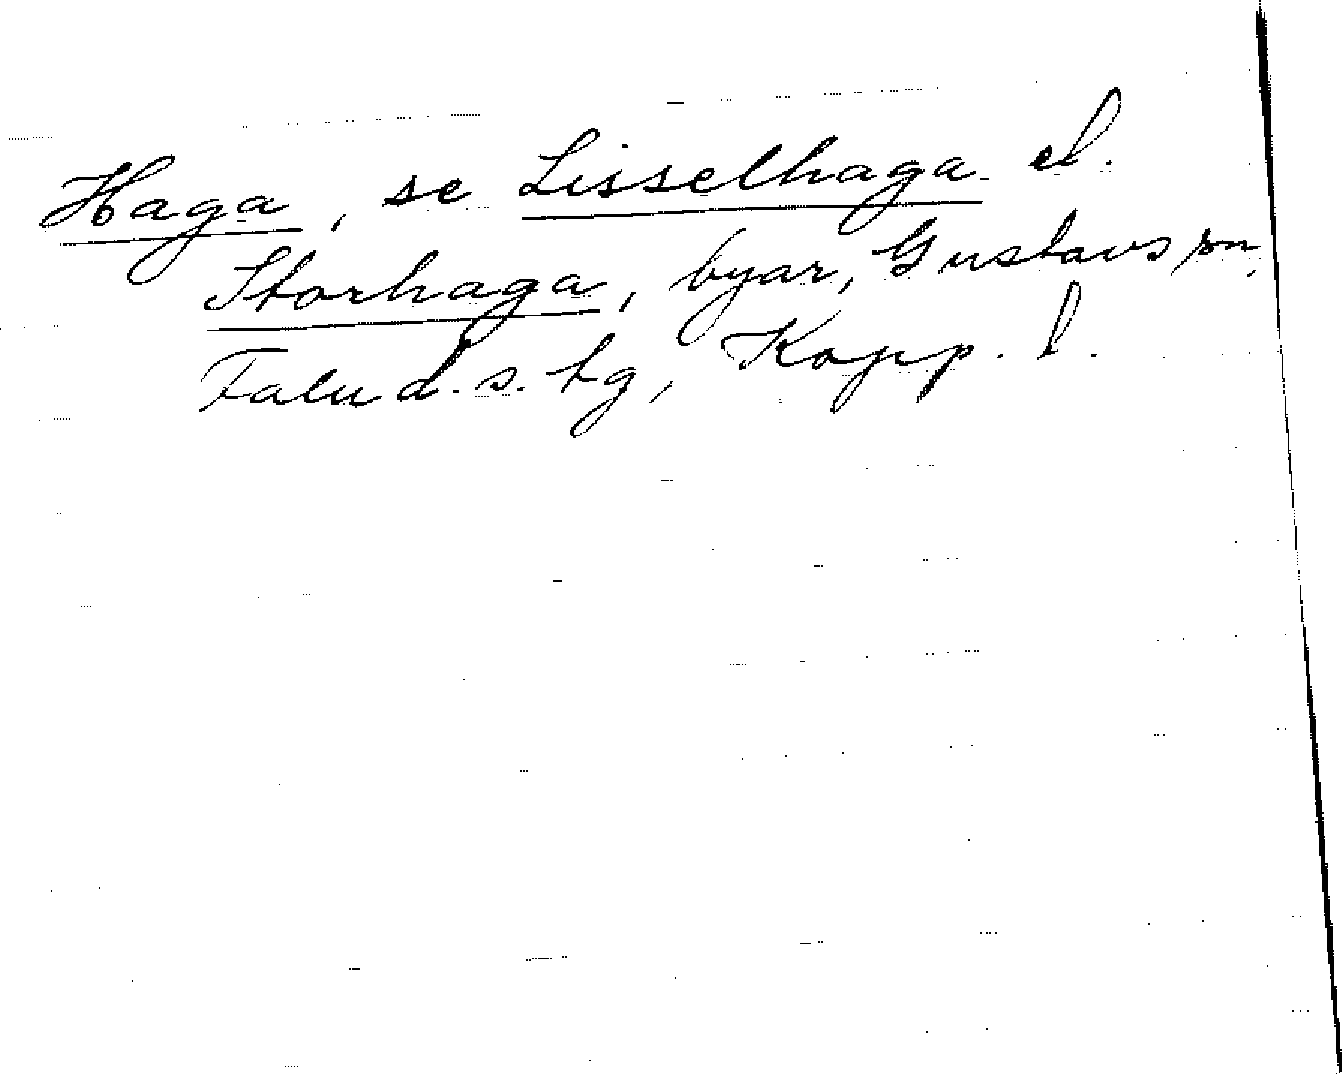 Haga, se Lisselhaga el.
Storhaga, byar, Gustavs sn,
Falu d.s. tg, Kopp. l.